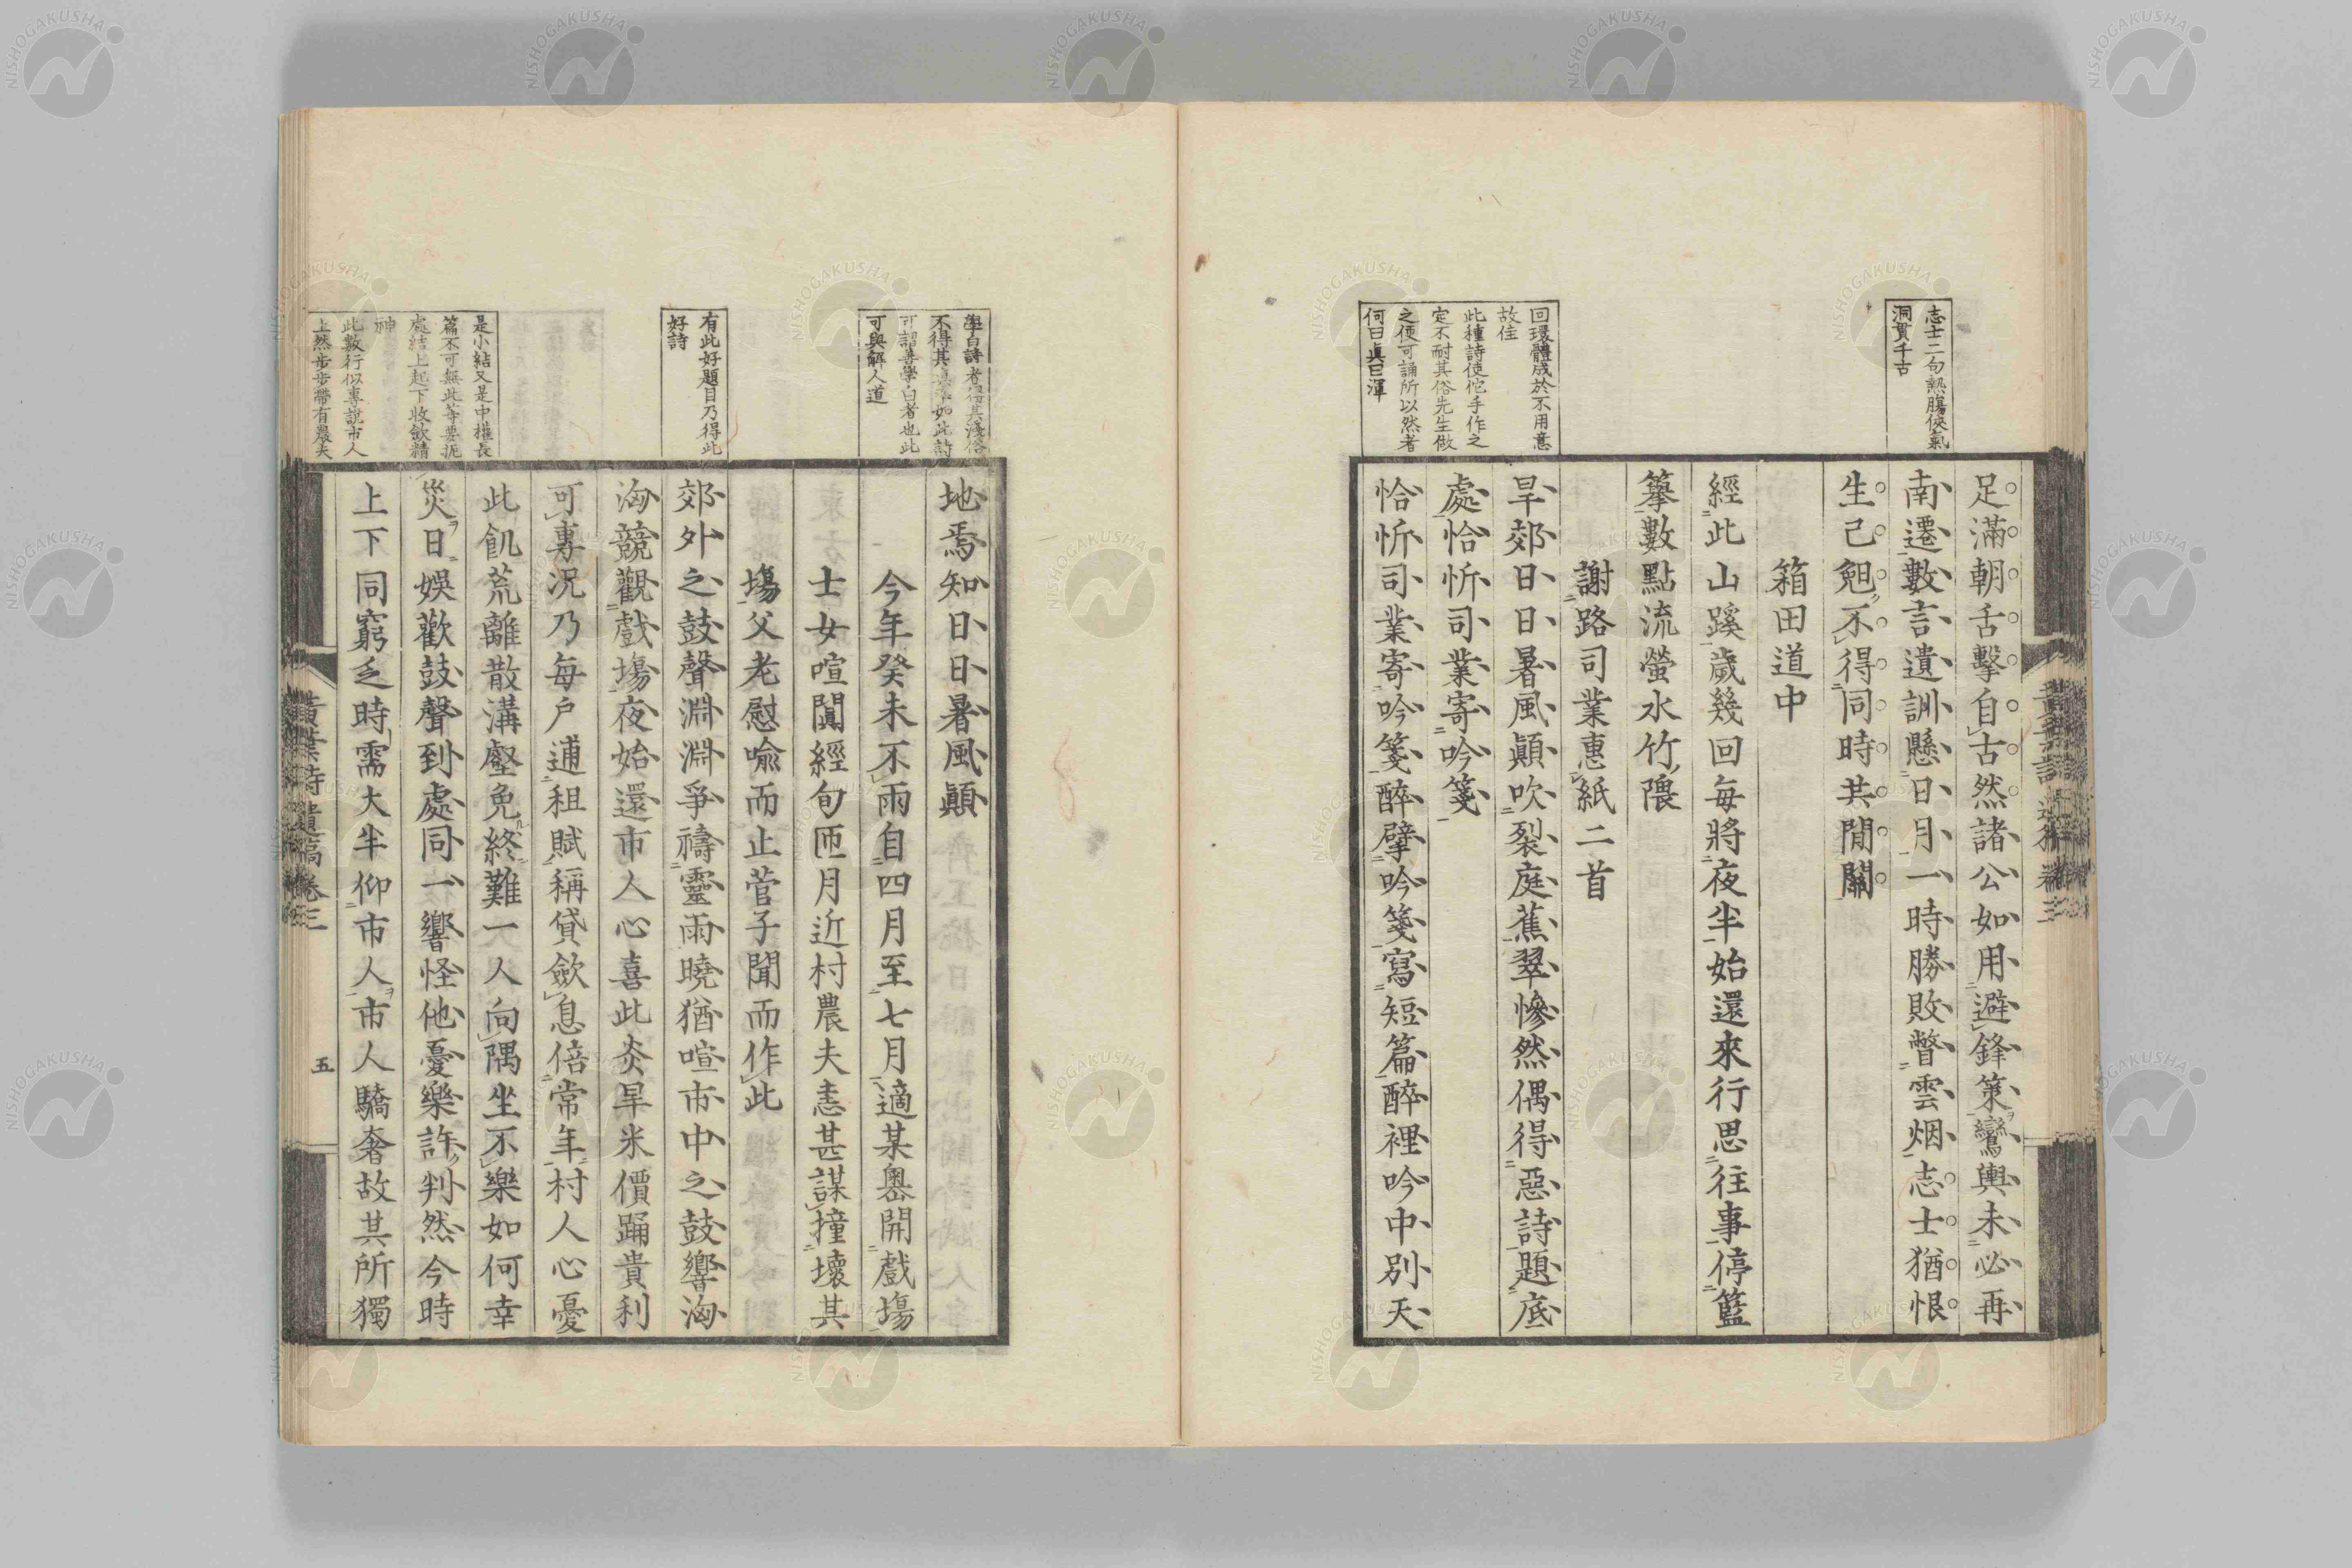 志士二句熱膓俠氣
洞貫千古
足滿朝舌擊自古然諸公如用避鋒策鸞輿未必再
南遷數言遺訓懸日月一時勝敗瞥雲烟志士猶恨
生己晚不得同時共閒關
箱田道中
經此山蹊歲幾回每將夜半始還來行思往事停籃
箰數點流螢水竹隈
謝路司業惠紙二首
回環體成於不用意
故佳
此種詩使佗手作之
定不耐其俗先生做
之便可誦所以然者
何曰真曰渾
旱郊日日暑風顚吹裂庭蕉翠慘然偶得惡詩題底
處恰忻司業寄吟箋
恰忻司業寄吟箋醉擘吟箋寫短篇醉裡吟中別天
學白詩者得其淺俗
不得其如此詩
可謂善學白者也此
可與解人道
地焉知日日暑風顚
今年癸未不雨自四月至七月適某墺開戲塲
士女喧闐經旬匝月近村農夫恚甚謀撞壞其
塲父老慰喻而止菅子聞而作此
有此好題目乃得此
好詩
郊外之鼓聲淵淵爭禱靈雨曉猶喧市中之鼓響洶
洶競觀戲塲夜始還市人心喜此炎旱米價踊貴利
可專況乃每戶逋租賦稱貸歛息倍常年村人心憂
此飢荒離散溝壑免終難一人向隅坐不樂如何幸
災日娛歡鼓聲到處同一響怪他憂樂許判然今時
上下同窮乏時需大半仰市人市人驕奢故其所獨
是小結又是中權長
篇不可無此等要扼
處結上起下收歛精
神
此數行似專說市人
上然步步帶有農夫
黃葉詩遺稿卷三
五